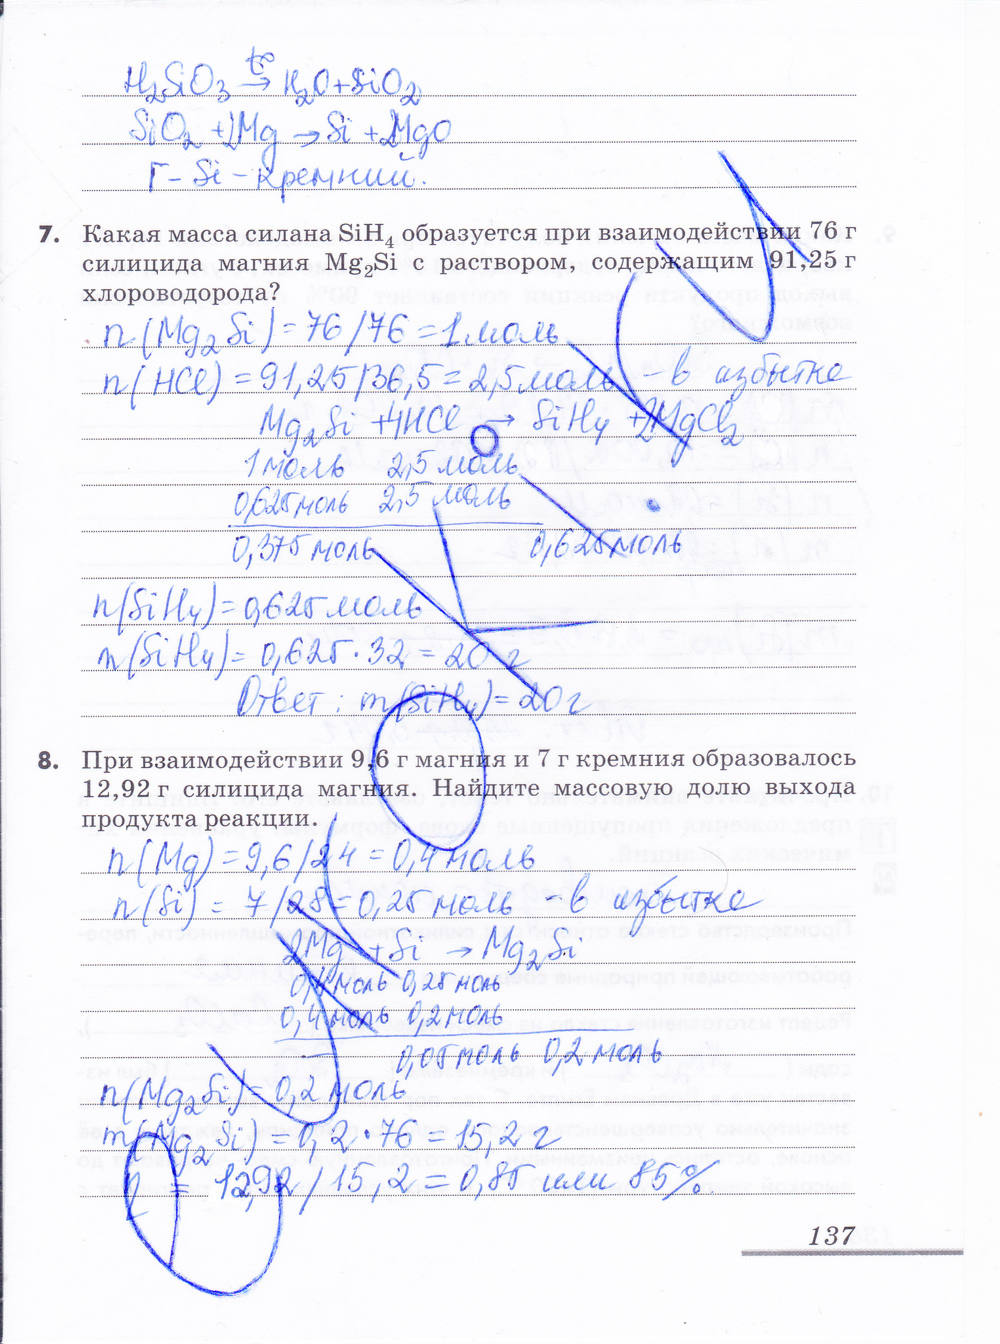 H₂SiO₃ →(t°) H₂O+SiO₂
SiO₂ +2Mg → Si +2MgO
Г – Si – кремний.
7. Какая масса силана SiH₄ образуется при взаимодействии 76 г
силицида магния Mg₂Si с раствором, содержащим 91,25 г
хлороводорода?
n(Mg₂Si) = 76/76 = 1 моль
n(HCl) = 91,25/36,5 = 2,5 моль – в избытке
Mg₂Si +4HCl → SiH₄ +2MgCl₂
1 моль 2,5 моль
0,625 моль 2,5 моль
0,375 моль 0,625 моль
n(SiH₄) = 0,625 моль
m(SiH₄) = 0,625 · 32 = 20 г
Ответ: m(SiH₄) = 20 г
8. При взаимодействии 9,6 г магния и 7 г кремния образовалось
12,92 г силицида магния. Найдите массовую долю выхода
продукта реакции.
n(Mg) = 9,6/24 = 0,4 моль
n(Si) = 7/28 = 0,25 моль – в избытке
2Mg + Si → Mg₂Si
0,4 моль 0,25 моль
0,4 моль 0,2 моль
0,05 моль 0,2 моль
n(Mg₂Si) = 0,2 моль
m(Mg₂Si) = 0,2 · 76 = 15,2 г
η = 12,92/15,2 = 0,85 или 85%.
137